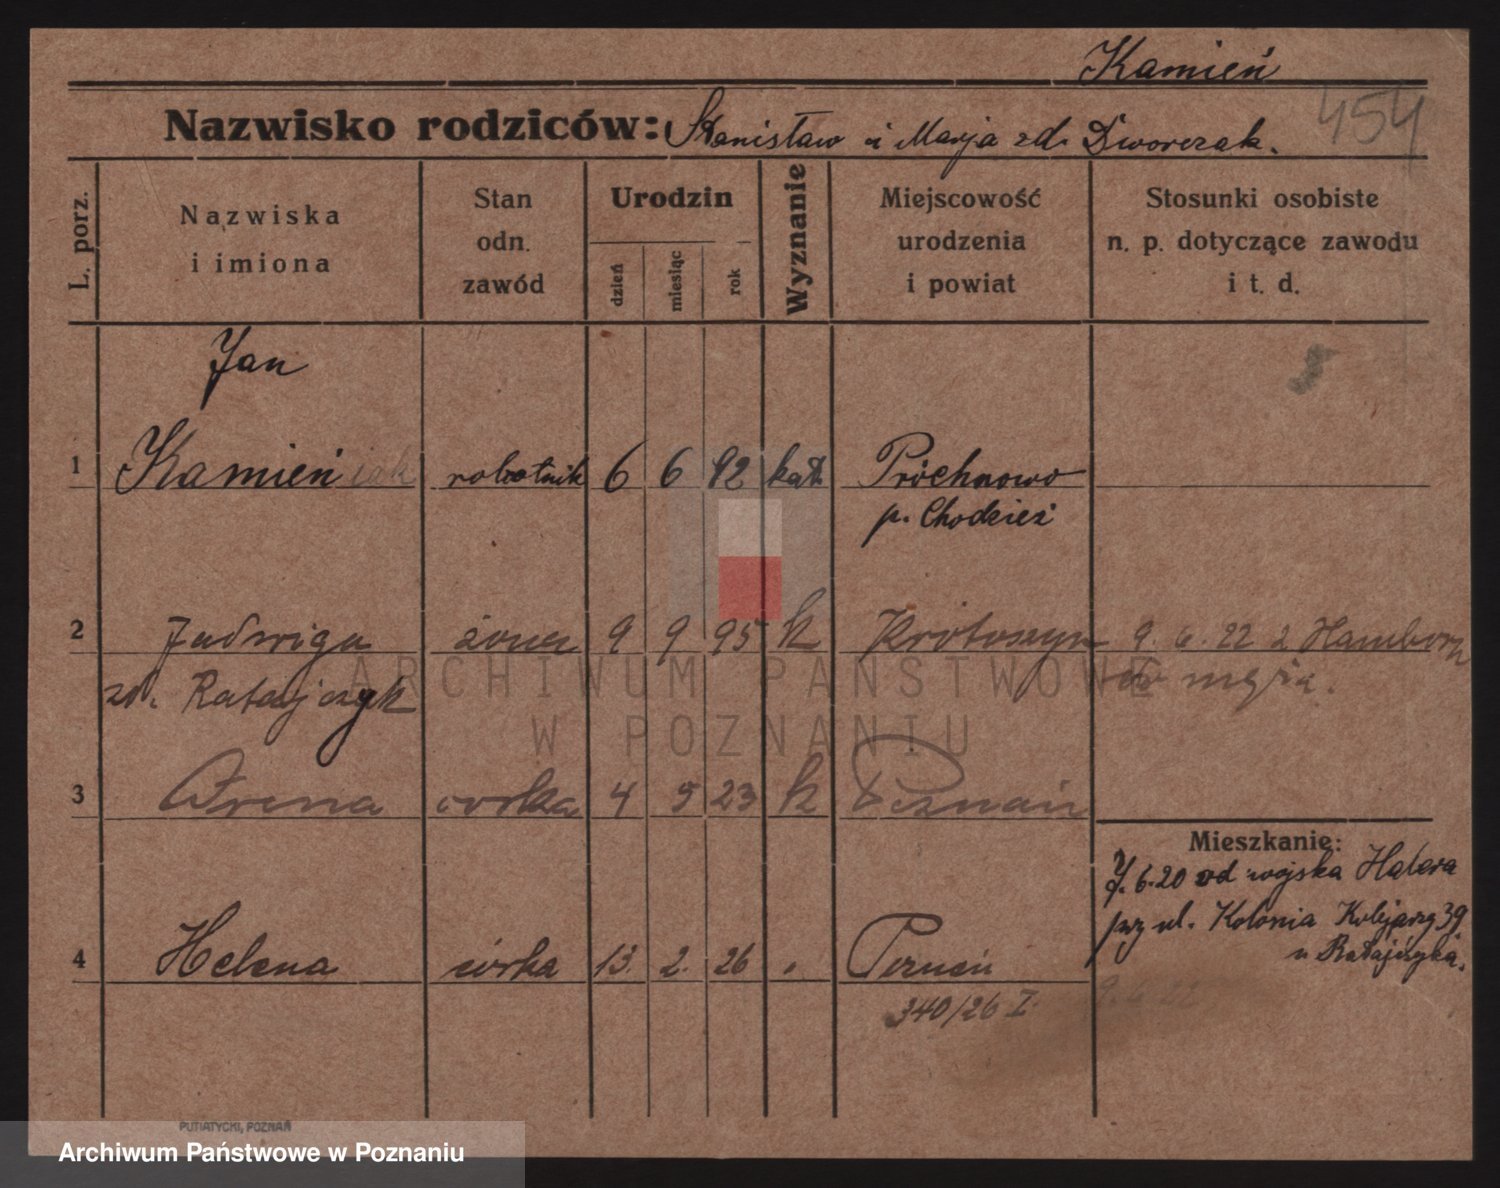 Kamień
454
Nazwisko rodziców: Stanisław i Marja zd. Dworczak.
L. porz.
Nazwiska
i imiona
Stan
odn.
zawód
Urodzin
dzień
miesiąc
rok
Wyznanie
Miejscowość
urodzenia
i powiat
Stosunki osobiste
n. p. dotyczące zawodu
i t. d.
Jan
1 Kamień iak robotnik 6 6 92 kat. Próchnowo
p. Chodzież
2 Jadwiga żona 9 9 95 k Krotoszyn 9. 6. 22 z Hamborn
zd. Ratajczyk do męża.
3 Irena córka 4 5 23 k Poznań
Mieszkanie:
7. 6. 20 od wojska Halera
przy ul. Kolonia Kolejarzy 39
u Ratajczyka.
4 Helena córka 13. 2. 26 " Poznań
340/26 I.
9. 6. 22
PUTIATYCKI, POZNAŃ
ARCHIWUM PAŃSTWOWE
W POZNANIU
Archiwum Państwowe w Poznaniu